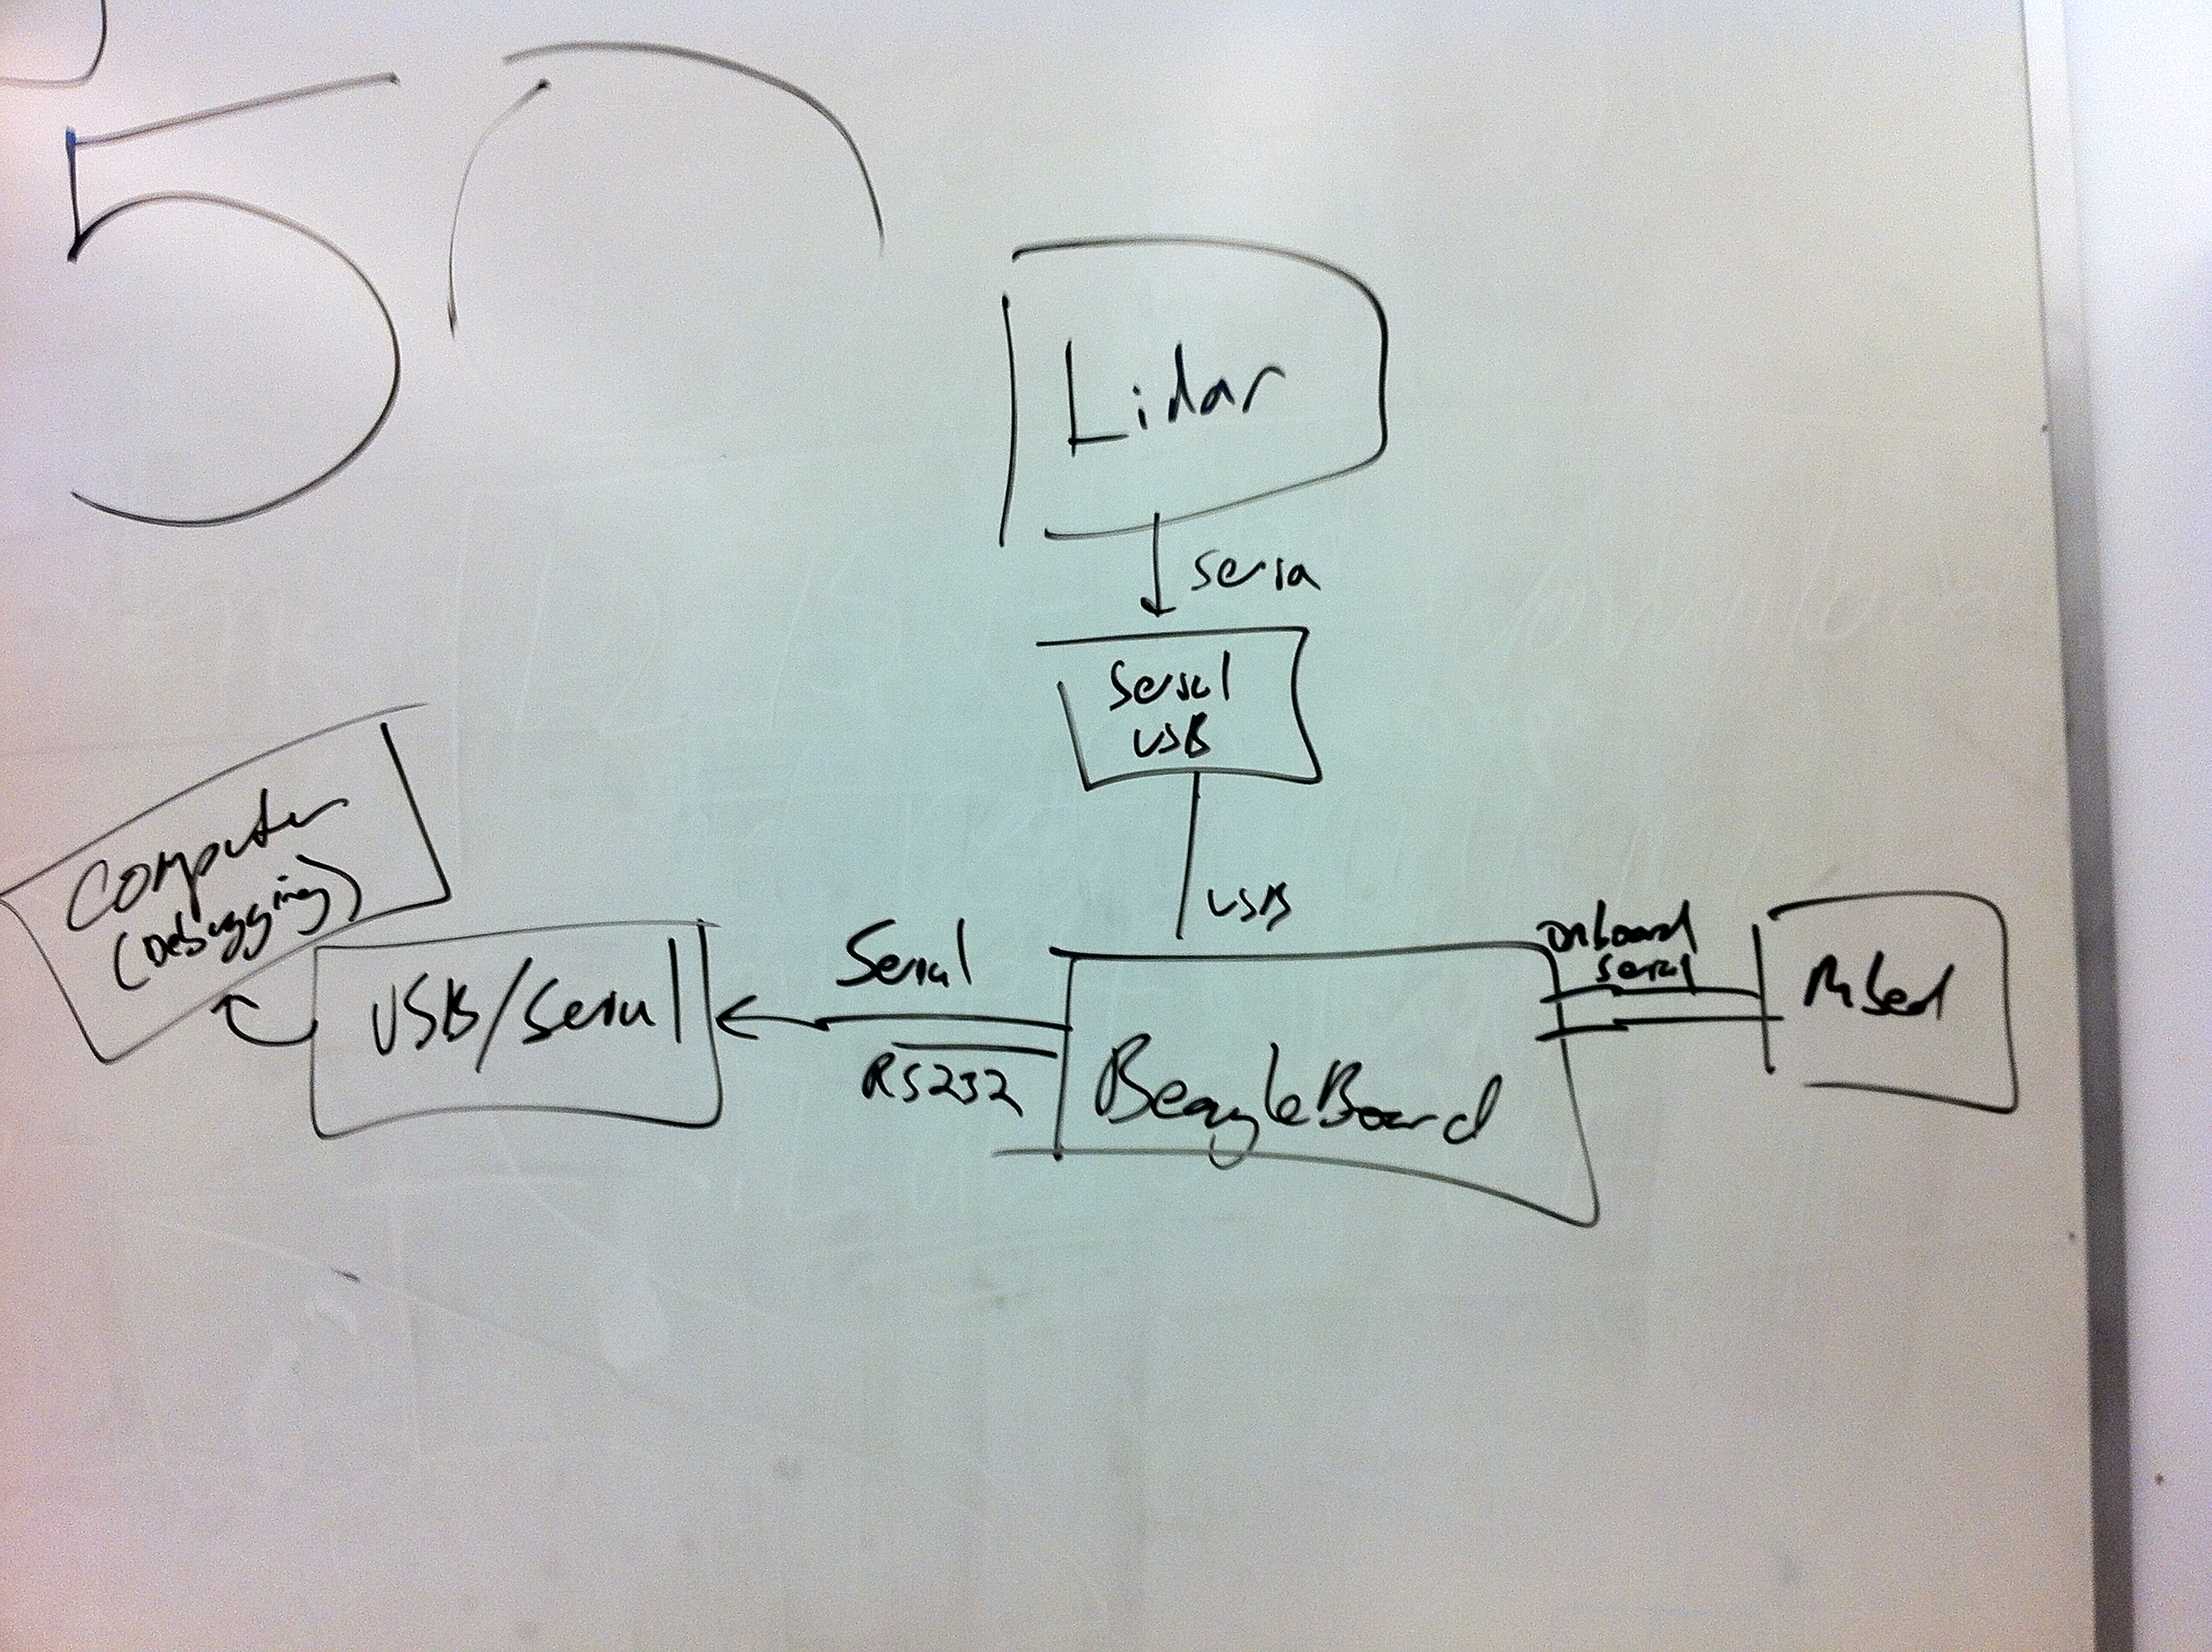 5
Lidar
seria
Serial
USB
USB
Computer
(Debugging)
USB/Serial
Serial
RS232
BeagleBoard
Onboard
serial
Mbed